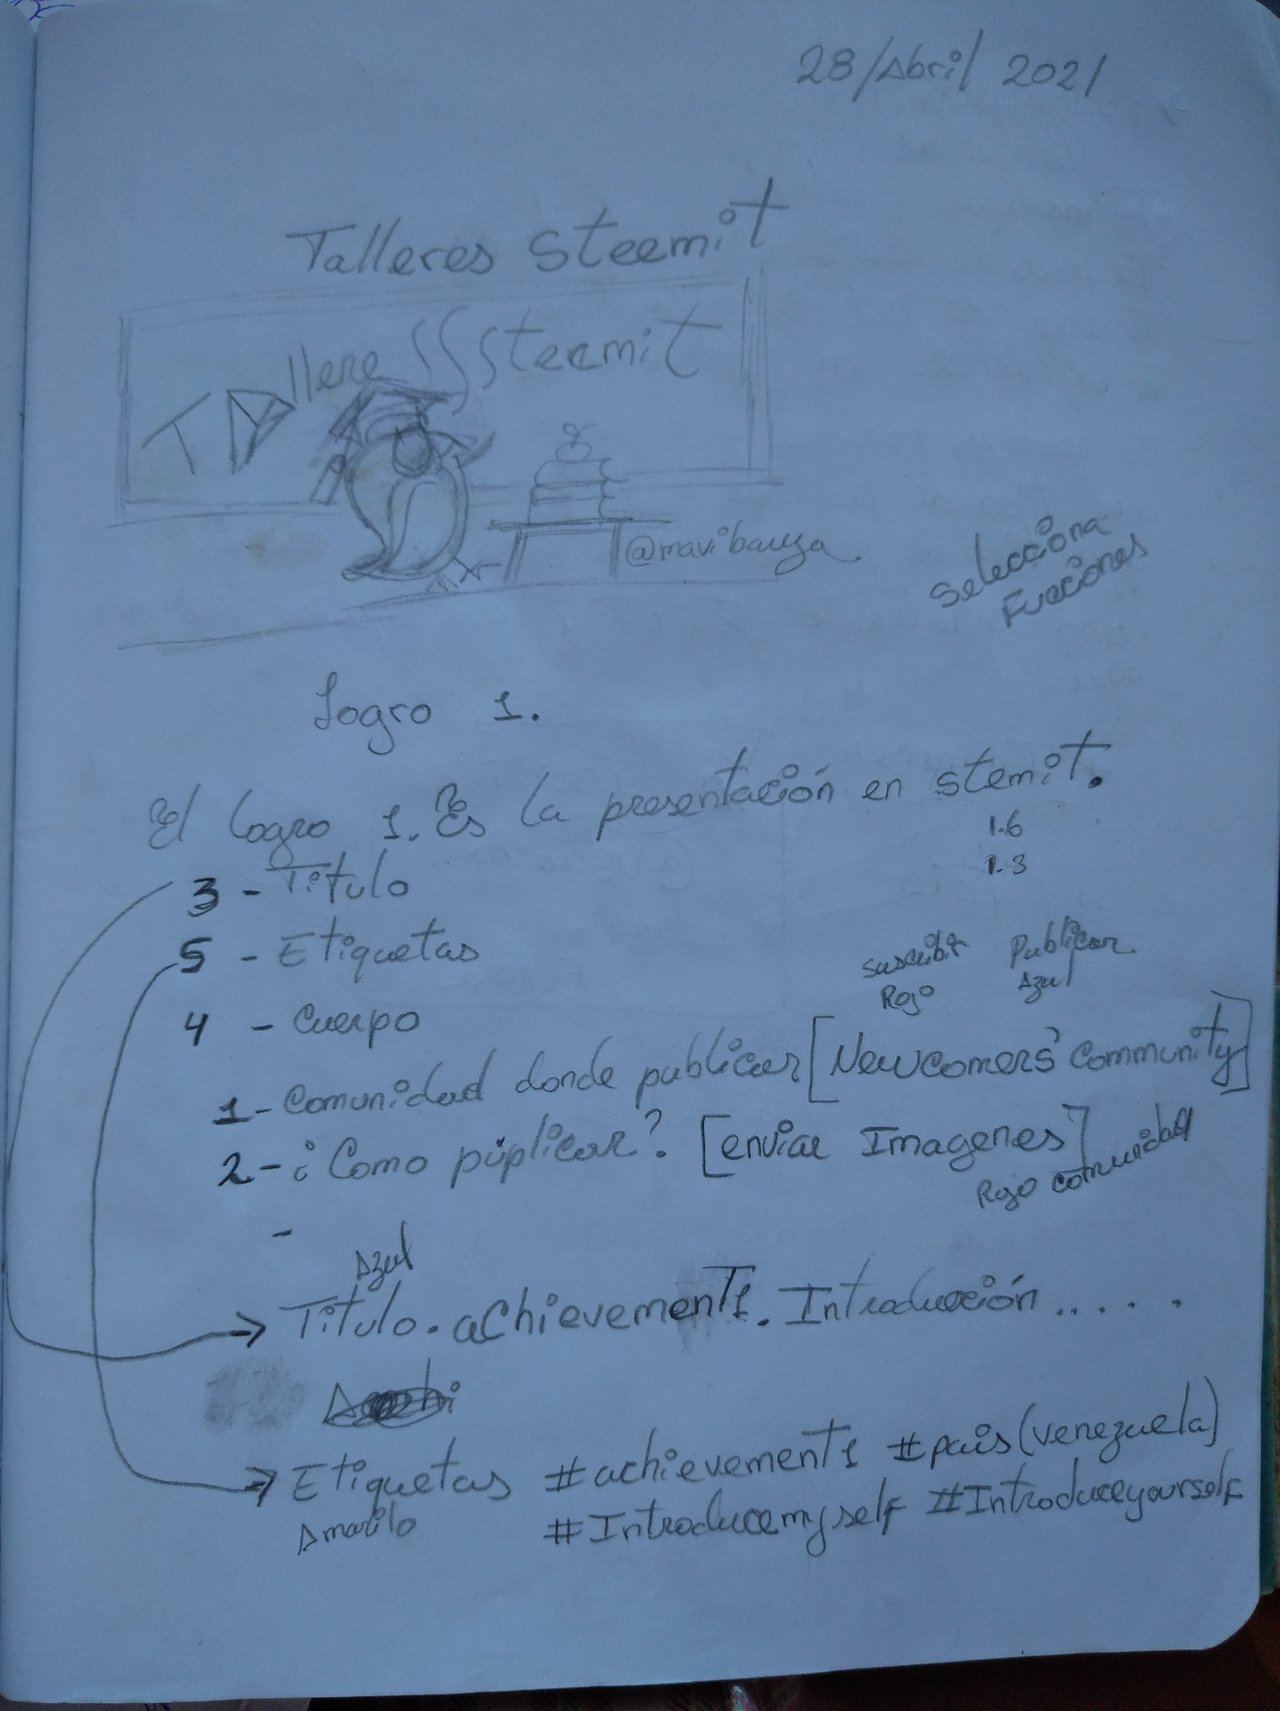 28/Abril 2021
Talleres Steemit
TAllereSSSteemit
@mavibauza
Selecciona
Funciones
Logro 1.
El logro 1. Es la presentación en stemit.
1.6
1.3
3 - Titulo
5 - Etiquetas
Publicar
Rojo
Azul
4 - Cuerpo
1 - Comunidad donde publicar [Newcomers' Community]
2 - ¿Como púplicar? [enviar Imagenes]
Rojo comunidad
-
Azul
Titulo. achievement1. Introducción .....
Etiquetas #achievement1 #pais(venezuela)
Amarilo #Introducemyself #Introduceyourself